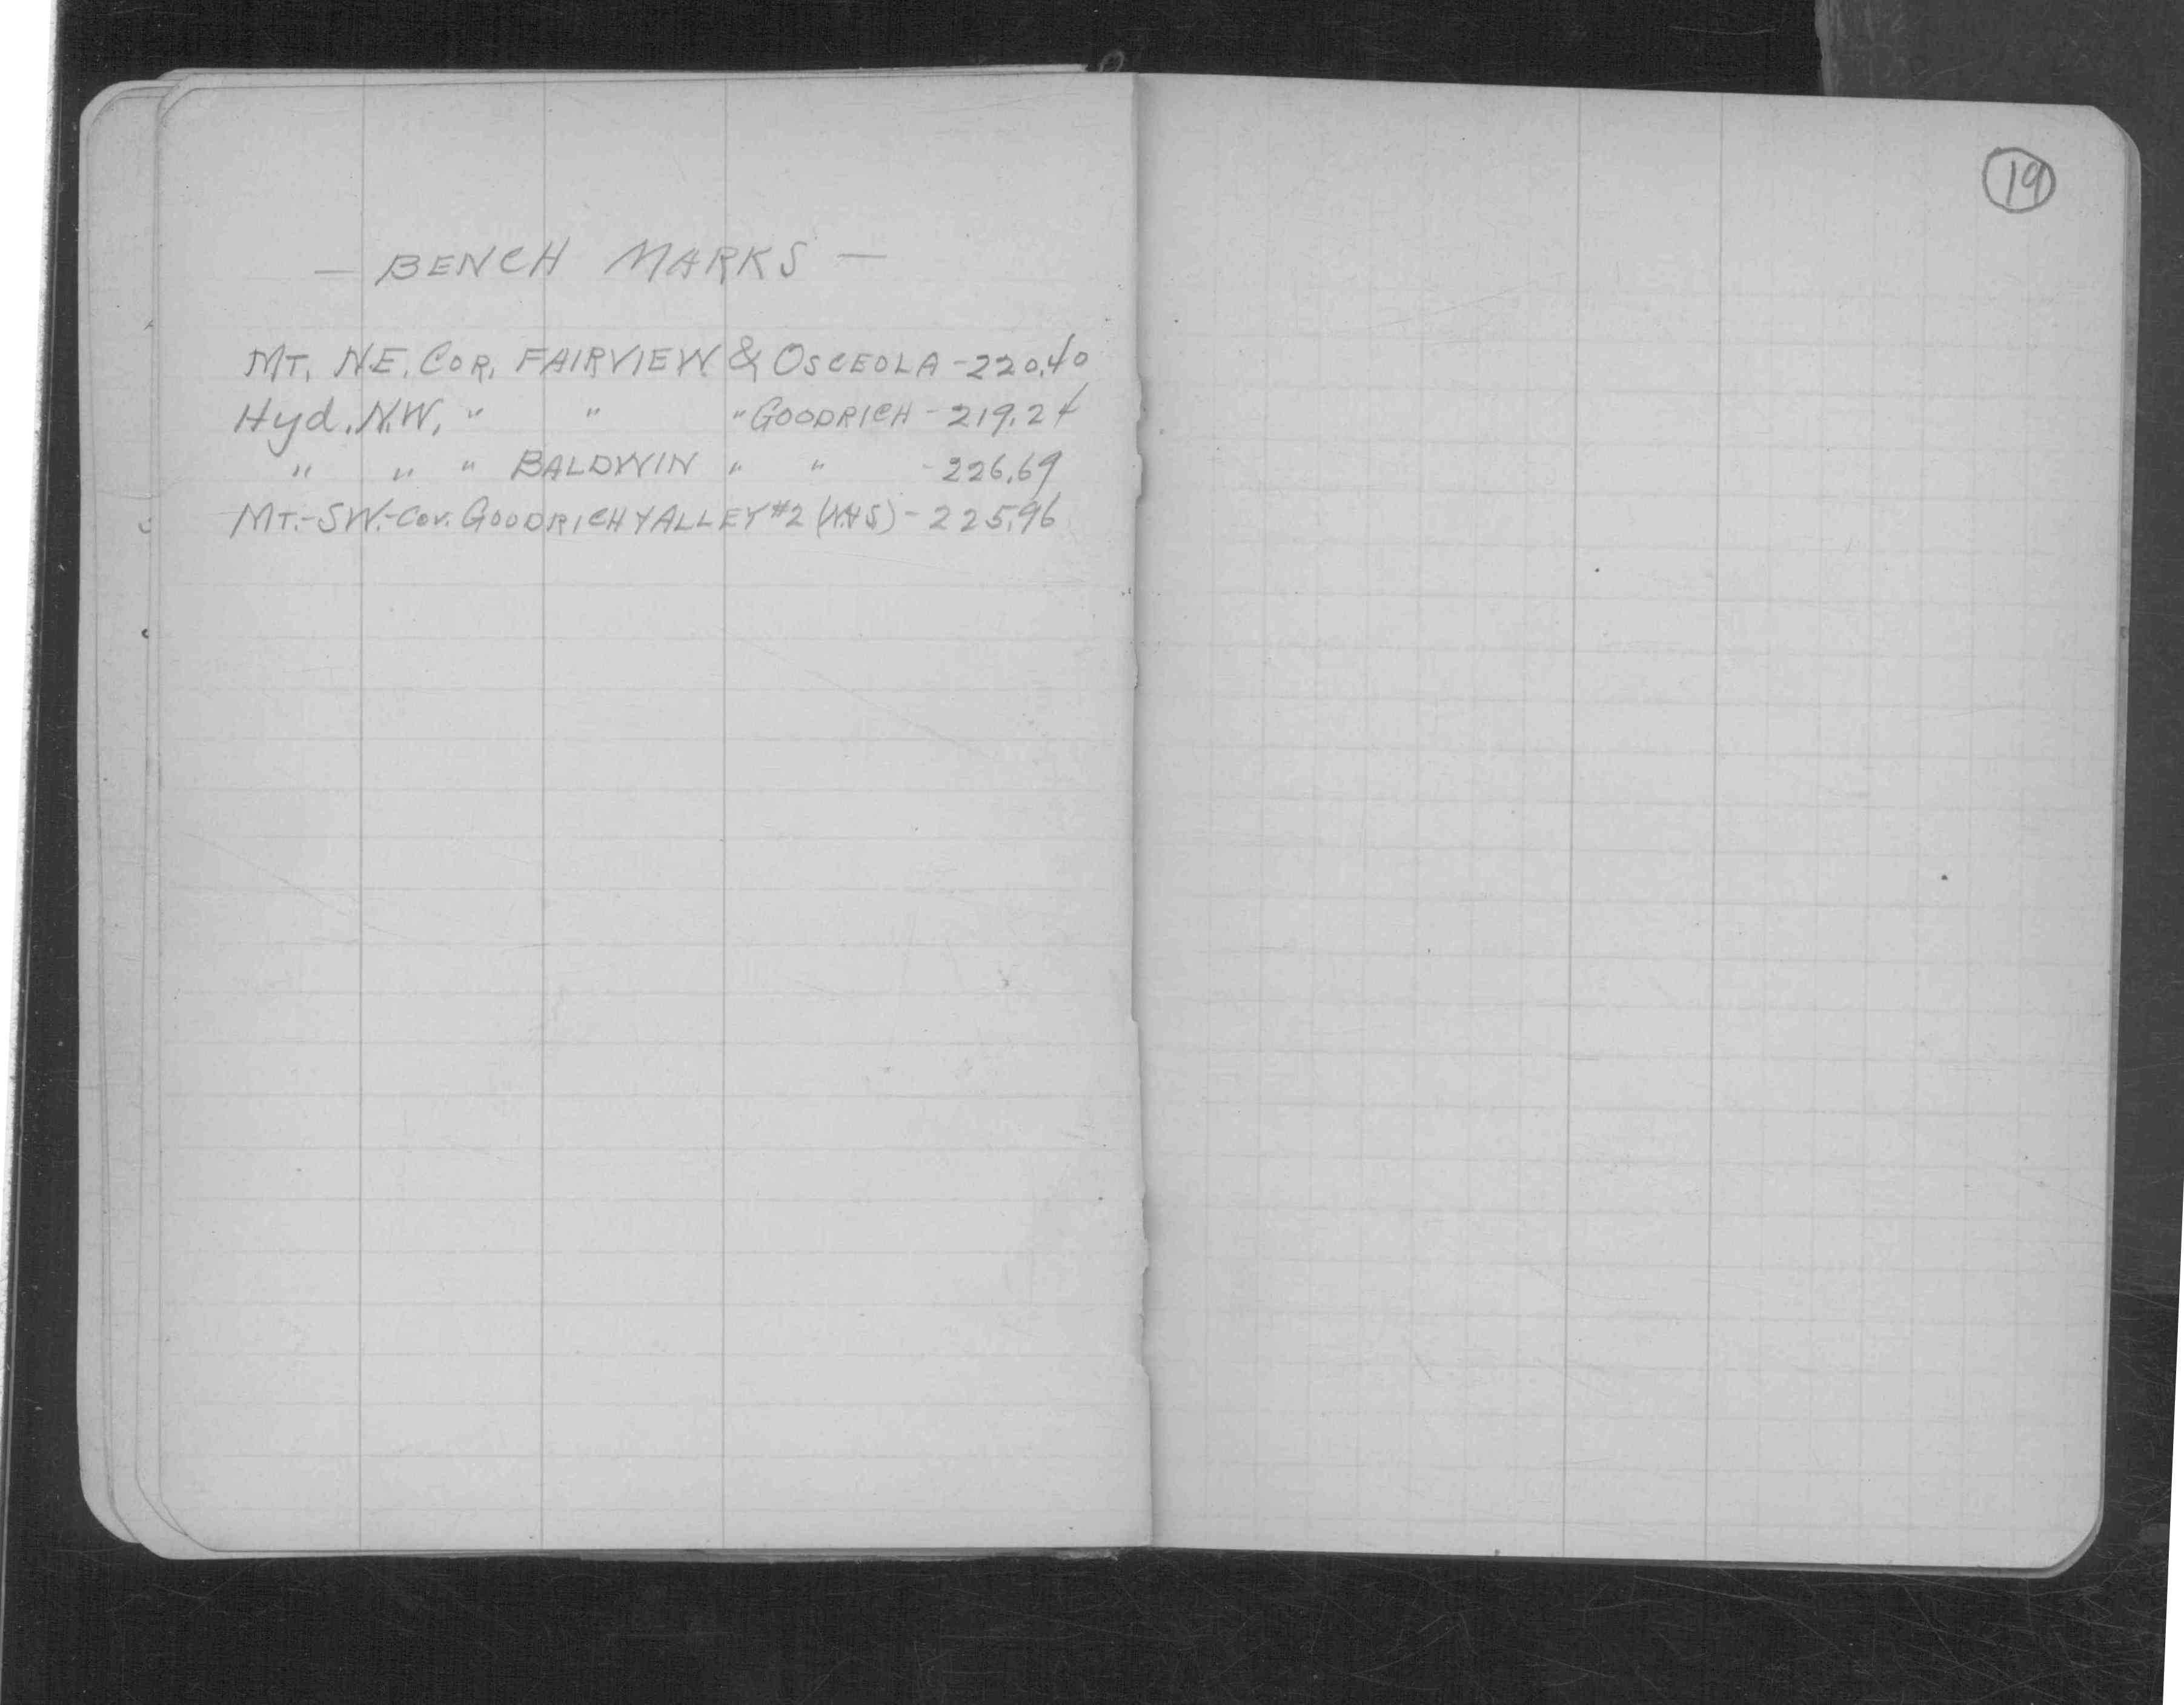 — BENCH MARKS —
MT. N.E. COR. FAIRVIEW & OSCEOLA - 220.40
Hyd. N.W. " " " GOODRICH - 219.24
" " " BALDWIN " " - 226.69
MT.- SW.- Cor. GOODRICH & ALLEY #2 - 225.96
19